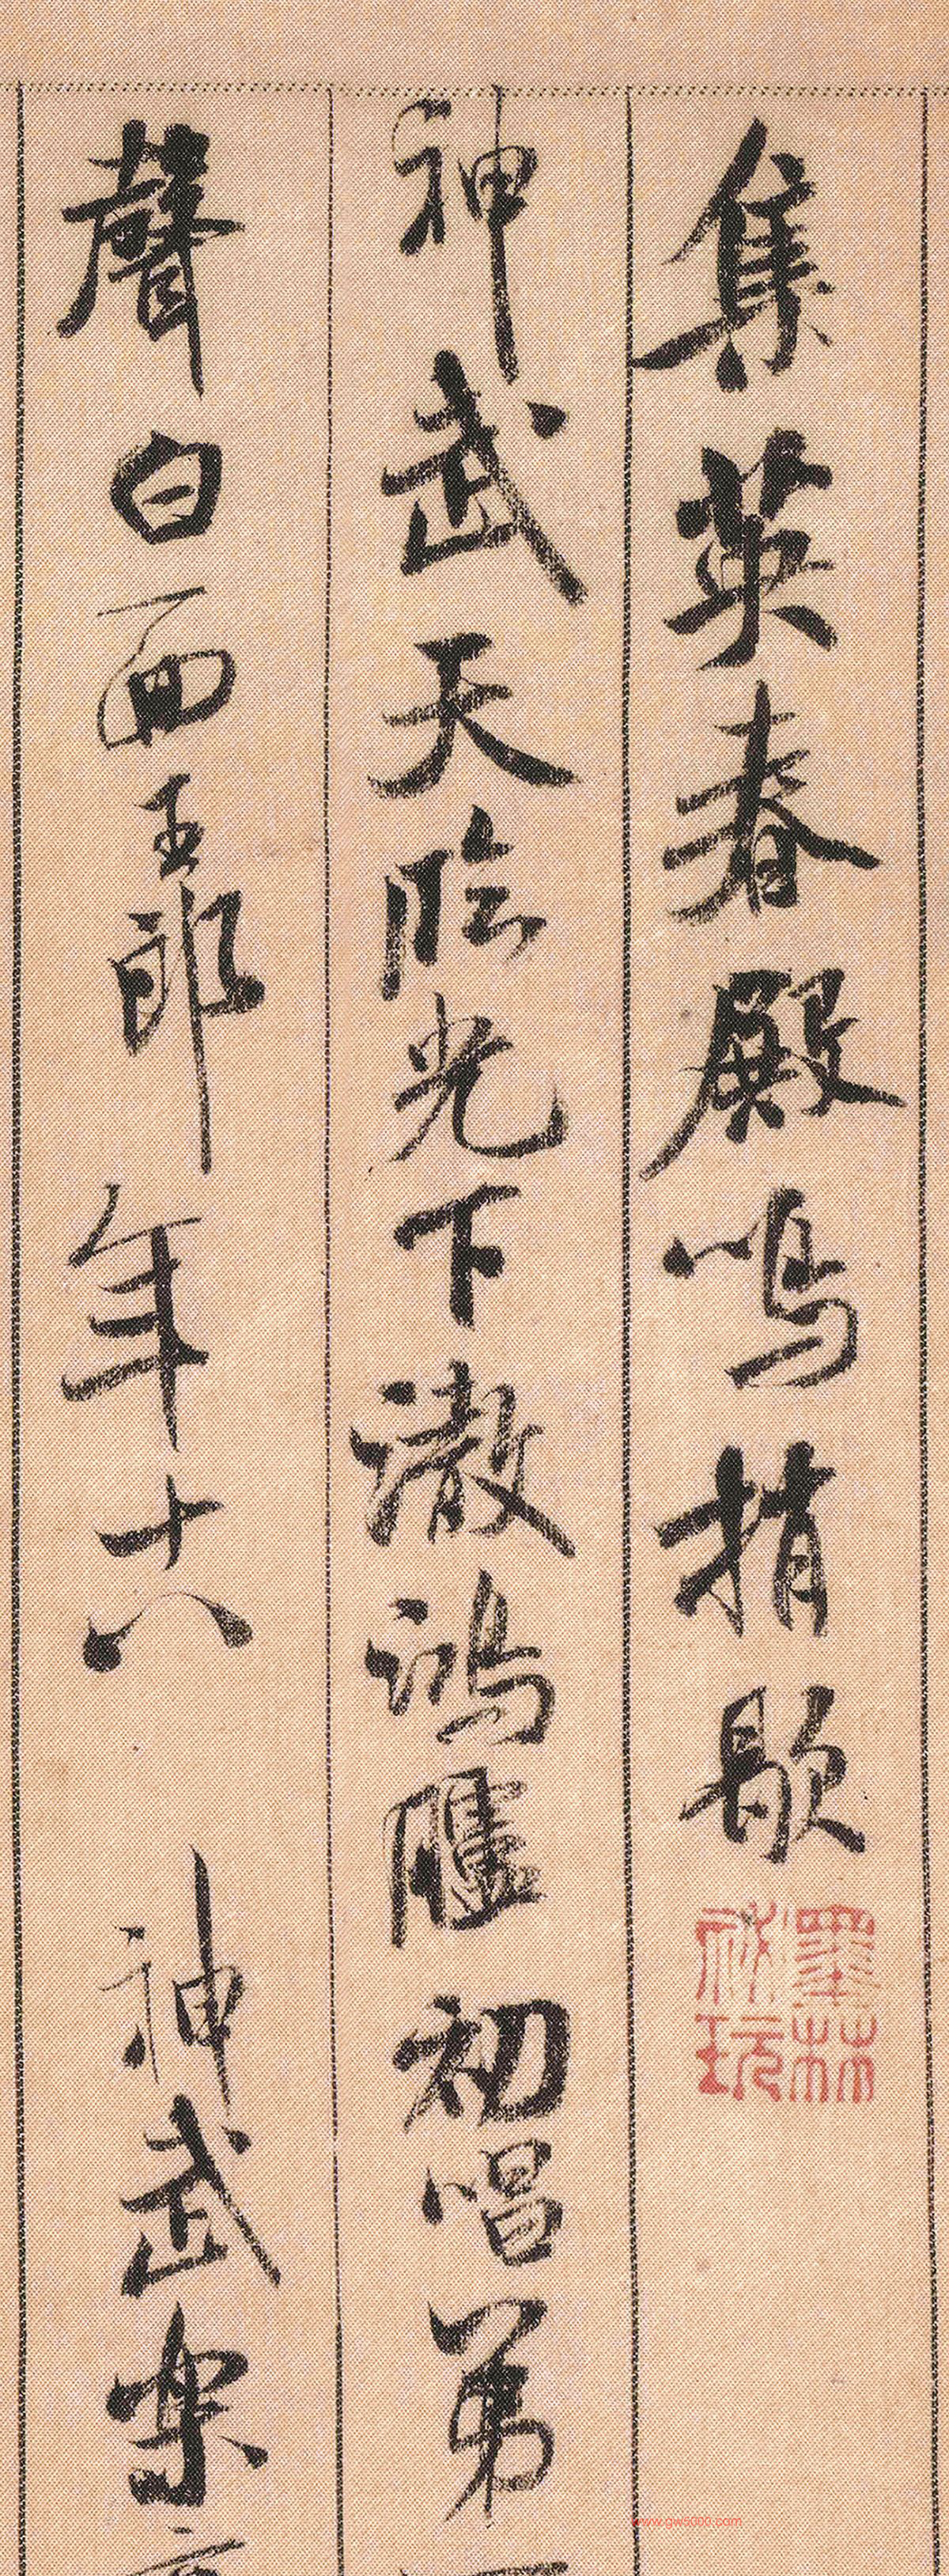 集英春殿鳴捎歇
墨林祕玩
神武天臨光下澈鴻臚初唱第
聲白面王郎年十八 神武樂
www.gw5000.com